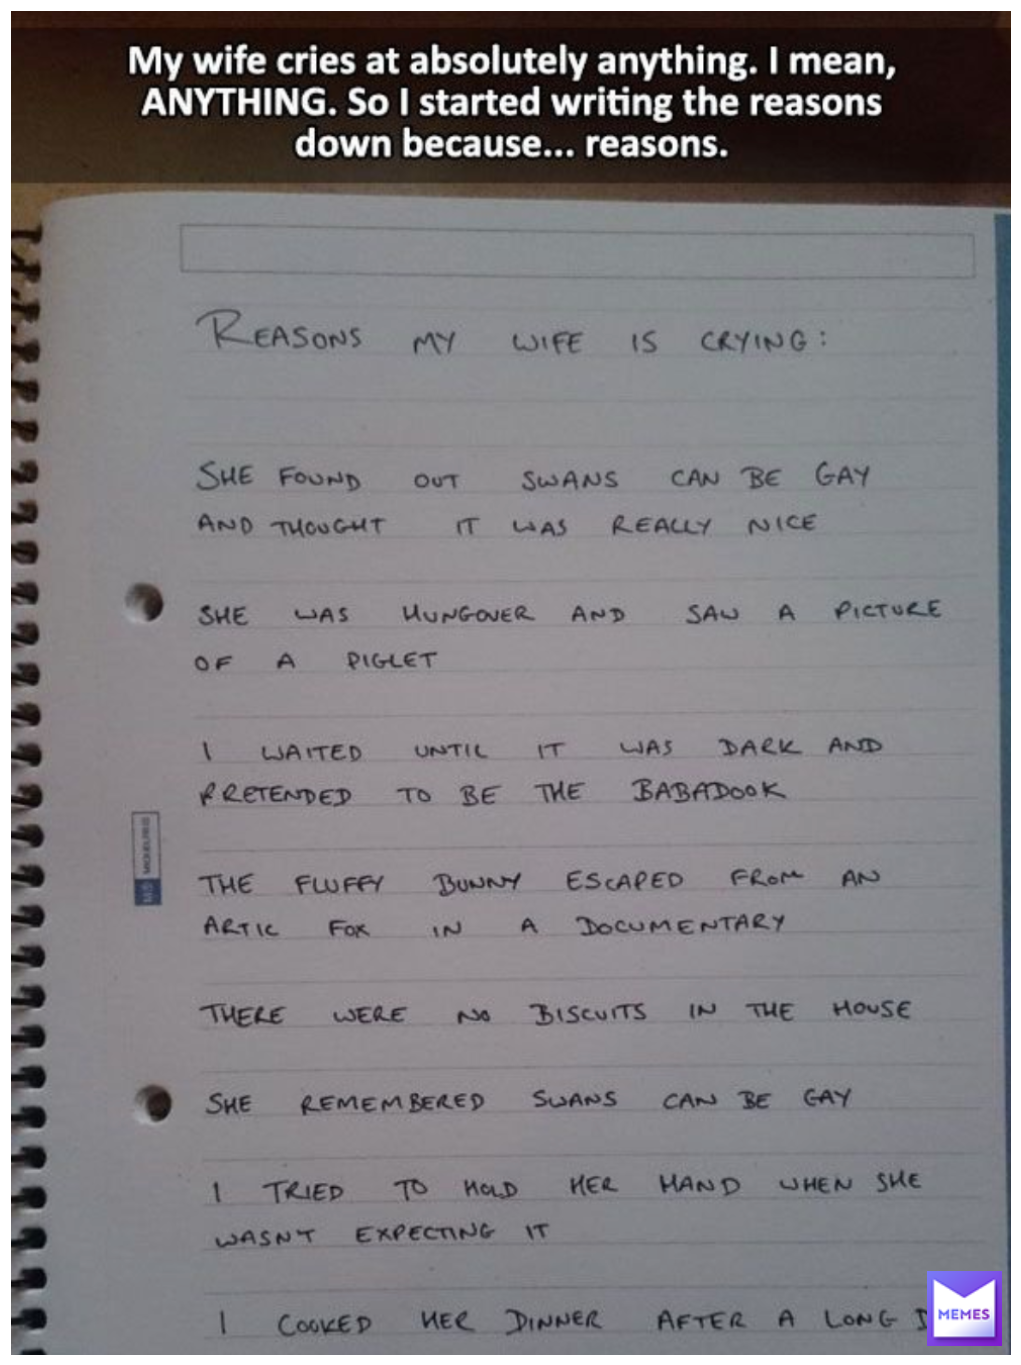 My wife cries at absolutely anything. I mean,
ANYTHING. So I started writing the reasons
down because... reasons.
REASONS MY WIFE IS CRYING:
SHE FOUND OUT SWANS CAN BE GAY
AND THOUGHT IT WAS REALLY NICE
SHE WAS HUNGOVER AND SAW A PICTURE
OF A PIGLET
I WAITED UNTIL IT WAS DARK AND
PRETENDED TO BE THE BABADOOK
THE FLUFFY BUNNY ESCAPED FROM AN
ARTIC FOX IN A DOCUMENTARY
THERE WERE NO BISCUITS IN THE HOUSE
SHE REMEMBERED SWANS CAN BE GAY
I TRIED TO HOLD HER HAND WHEN SHE
WASNT EXPECTING IT
I COOKED HER DINNER AFTER A LONG
MEMES